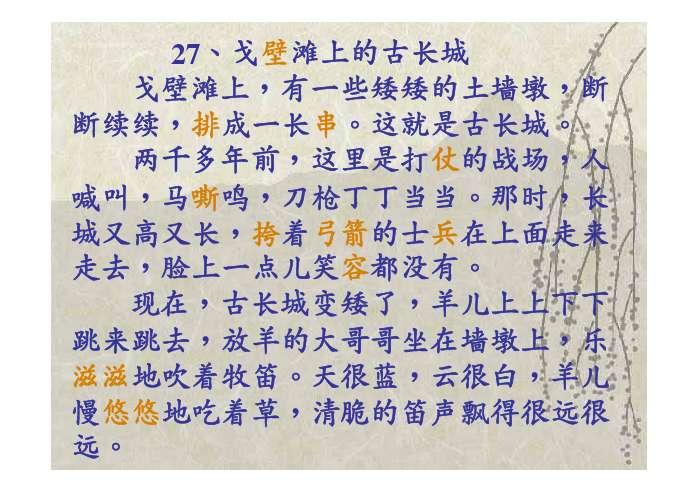 27、戈壁滩上的古长城
戈壁滩上，有一些矮矮的土墙墩，断
断续续，排成一长串。这就是古长城。
两千多年前，这里是打仗的战场，人
喊叫，马嘶鸣，刀枪丁丁当当。那时，长
城又高又长，挎着弓箭的士兵在上面走来
走去，脸上一点儿笑容都没有。
现在，古长城变矮了，羊儿上上下下
跳来跳去，放羊的大哥哥坐在墙墩上，乐
滋滋地吹着牧笛。天很蓝，云很白，羊儿
慢悠悠地吃着草，清脆的笛声飘得很远很
远。